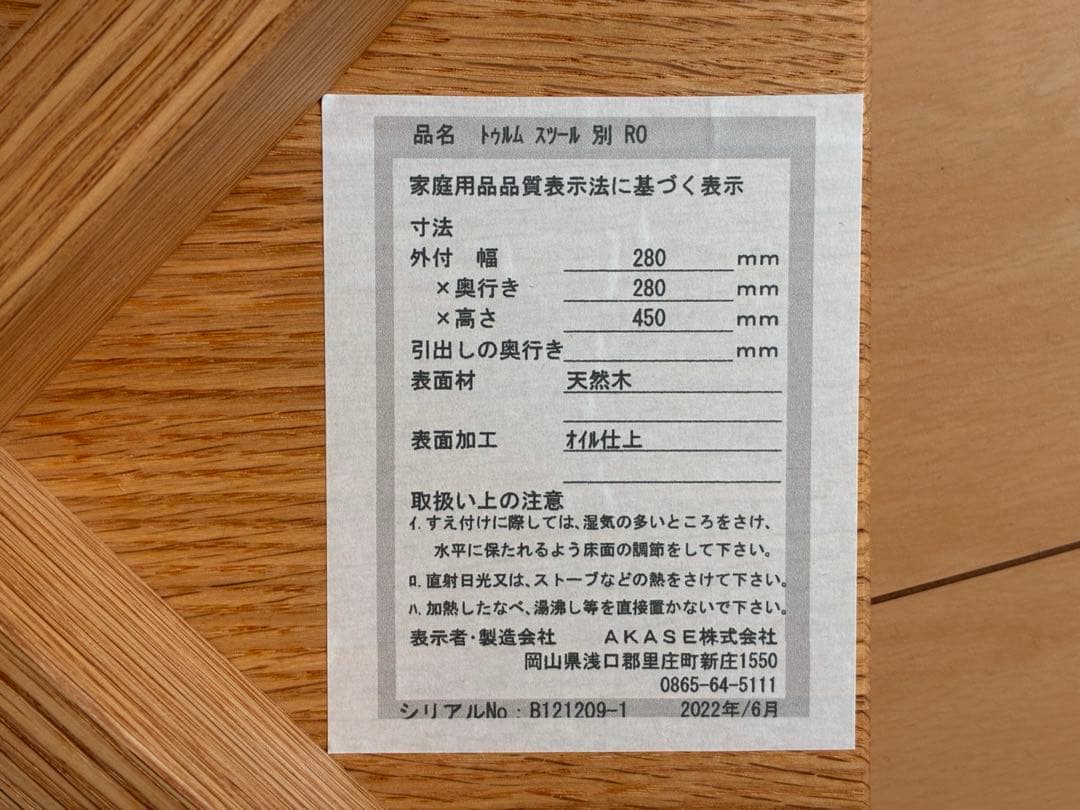 品名　ﾄｩﾙﾑ ｽﾂｰﾙ 別 RO
家庭用品品質表示法に基づく表示
寸法
外付　幅 280 mm
×奥行き 280 mm
×高さ 450 mm
引出しの奥行き mm
表面材 天然木
表面加工 ｵｲﾙ仕上
取扱い上の注意
ｲ.すえ付けに際しては､湿気の多いところをさけ､
水平に保たれるよう床面の調節をして下さい｡
ﾛ.直射日光又は､ストーブなどの熱をさけて下さい｡
ﾊ.加熱したなべ､湯沸し等を直接置かないで下さい｡
表示者・製造会社　ＡＫＡＳＥ株式会社
岡山県浅口郡里庄町新庄1550
0865-64-5111
シリアルNo：B121209-1　2022年/6月